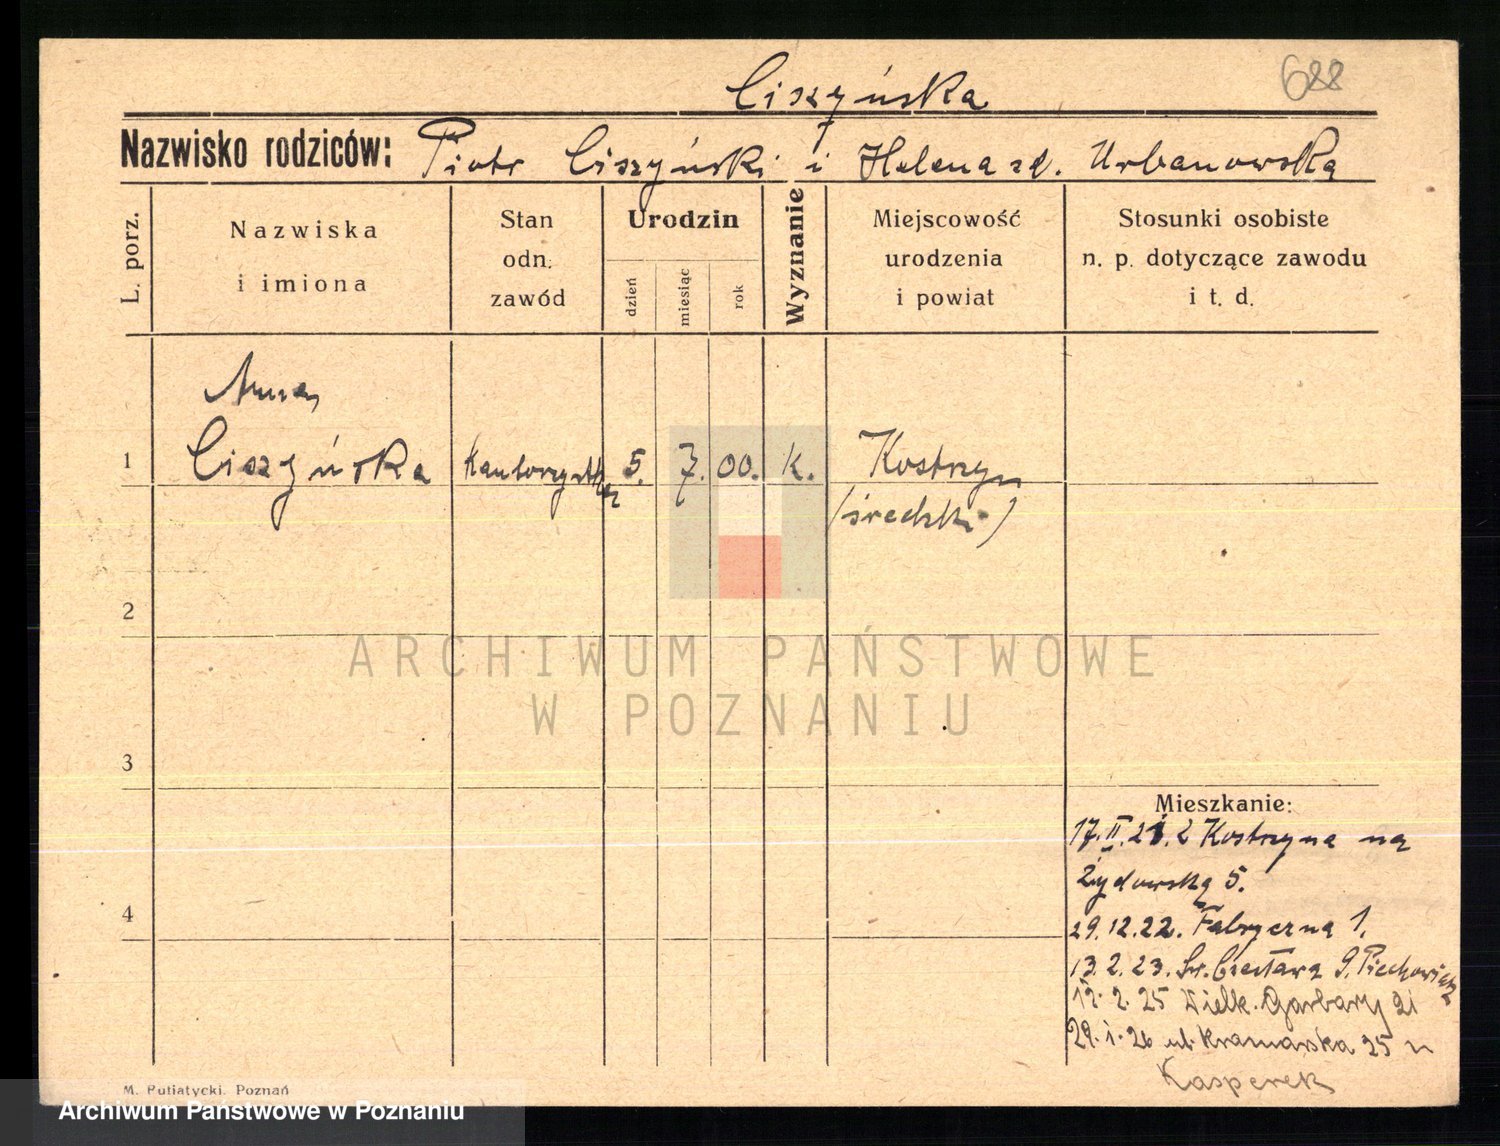 Ciszyńska
688
Nazwisko rodziców: Piotr Ciszyński i Helena zd. Urbanowska
L. porz.
Nazwiska
i imiona
Stan
odn.
zawód
Urodzin
dzień
miesiąc
rok
Wyznanie
Miejscowość
urodzenia
i powiat
Stosunki osobiste
n. p. dotyczące zawodu
i t. d.
Anna
1 Ciszyńska kantorzystka 5. 7. 00. k. Kostrzyn
(średzki)
2
ARCHIWUM PAŃSTWOWE
W POZNANIU
3
Mieszkanie:
17.II.21. z Kostrzyna na
Żydowską 5.
4
29.12.22. Fabryczna 1.
13.2.23. Św. Czesława 9. Piechowicz
17.2.25 Wielk. Garbary 21
29.1.26 ul. Kramarska 25 u
Kasperek
M. Putiatycki, Poznań
Archiwum Państwowe w Poznaniu